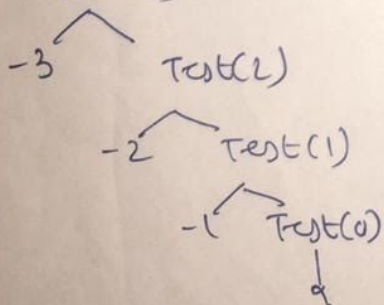 -3 Test(2)
-2 Test(1)
-1 Test(0)